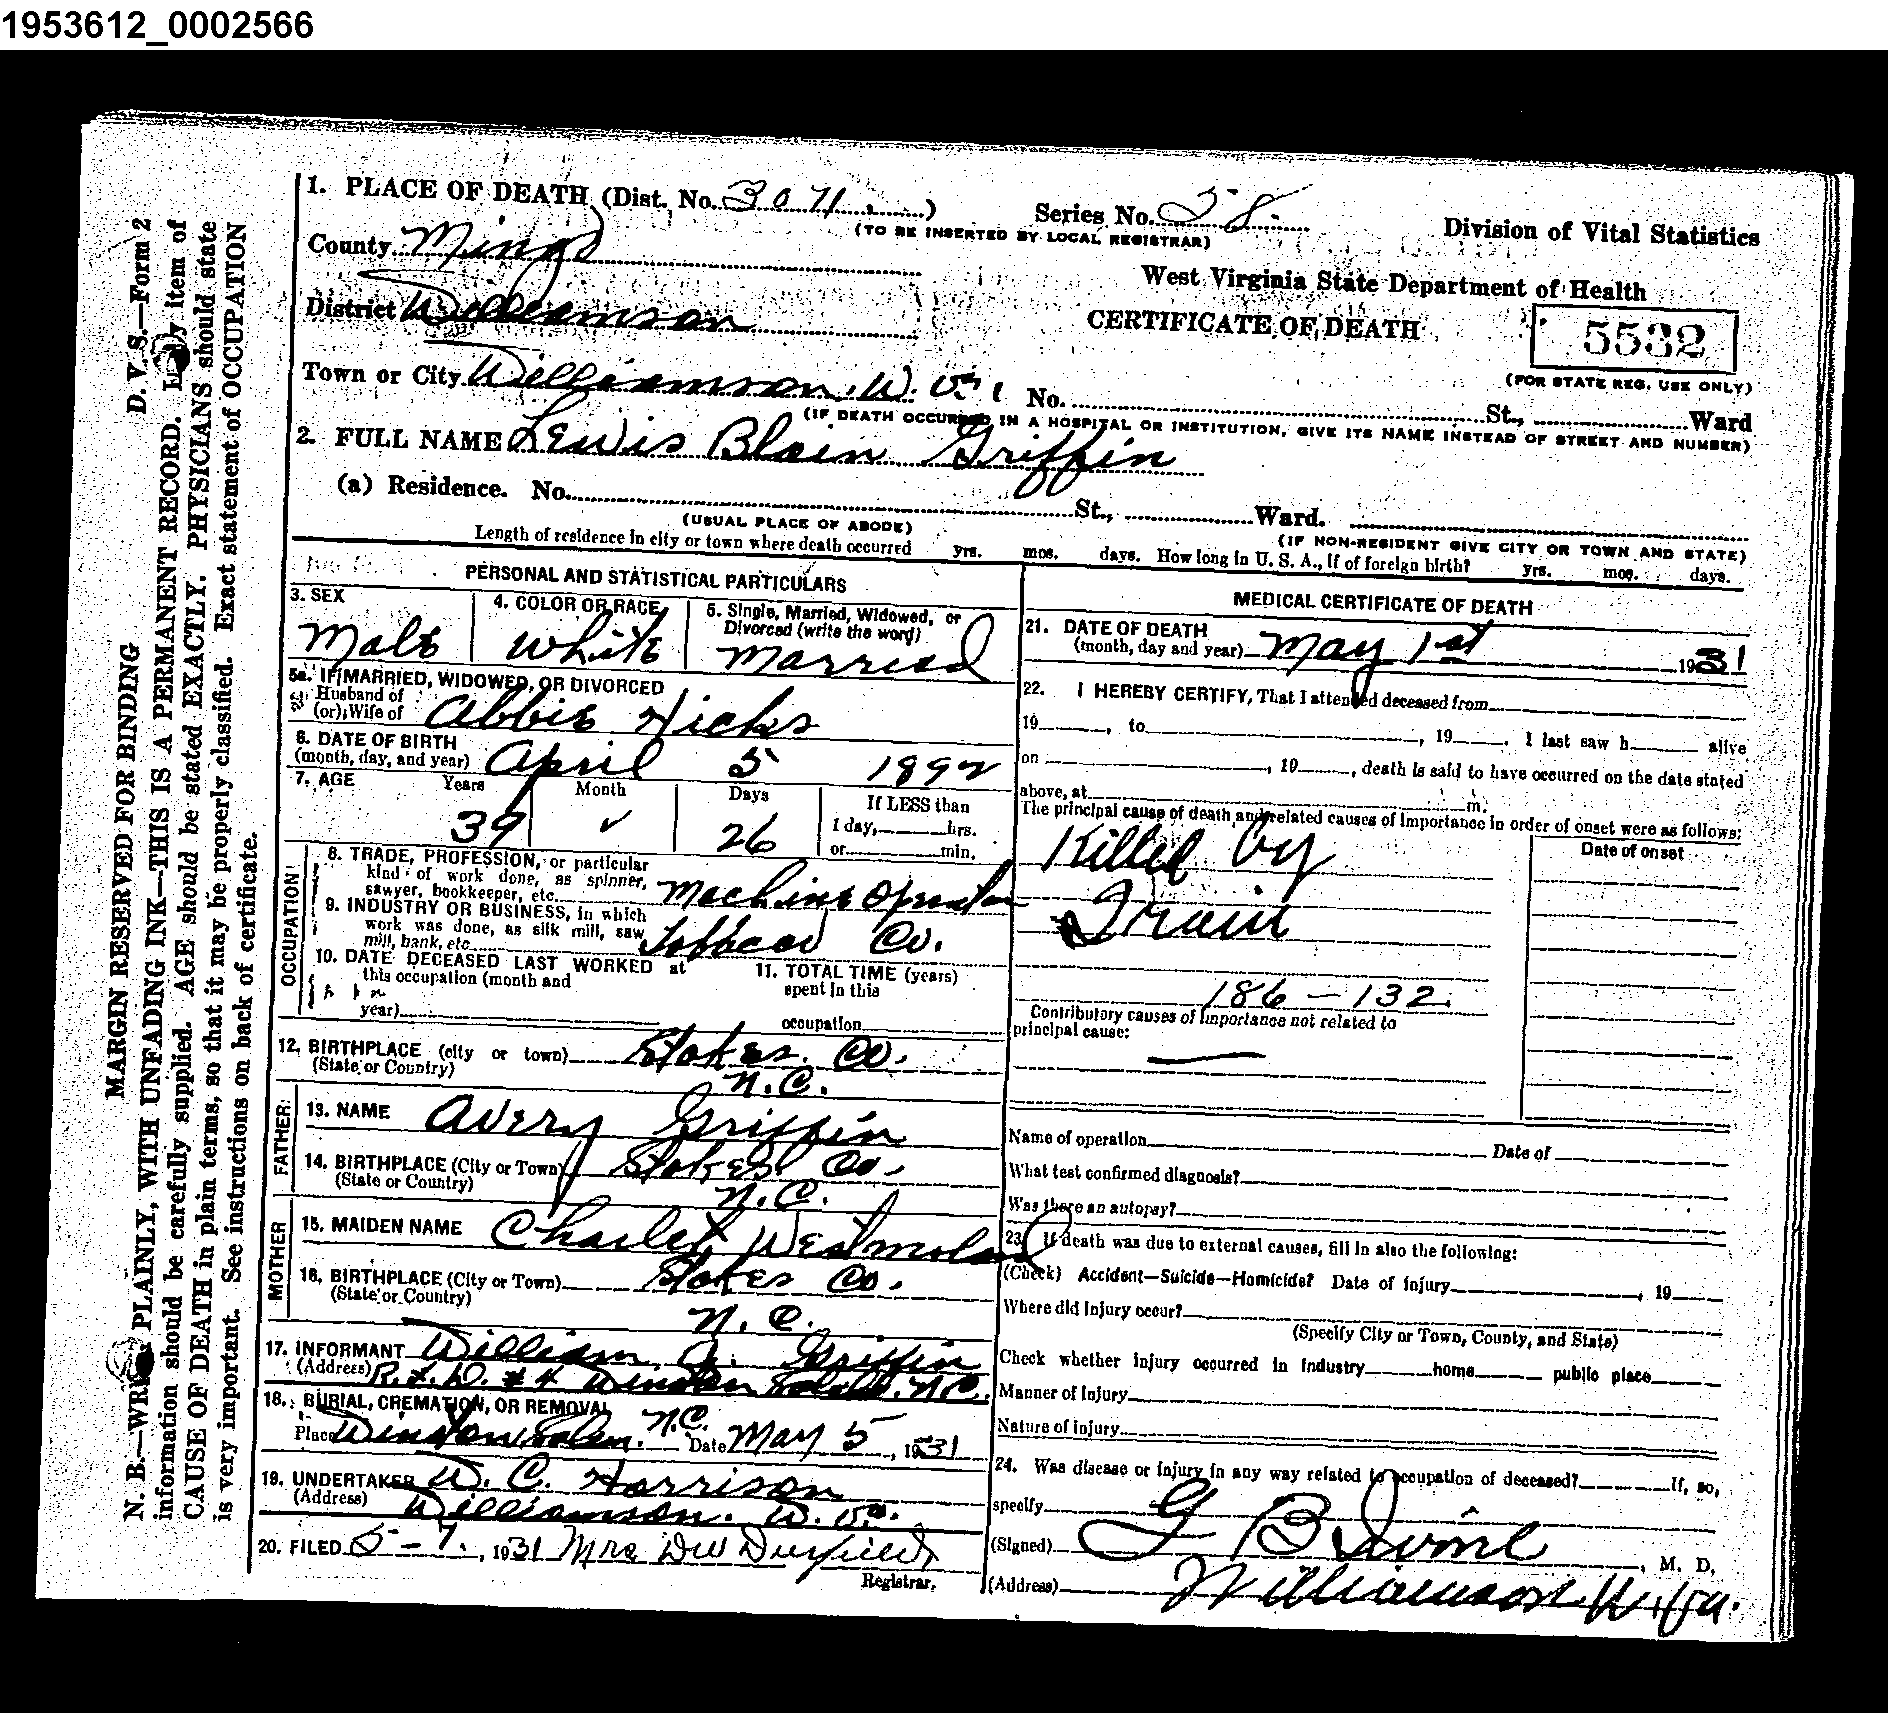 1953612_0002566
MARGIN RESERVED FOR BINDING D. V. S.—Form 2
N. B.—WRITE PLAINLY, WITH UNFADING INK—THIS IS A PERMANENT RECORD. Every item of
information should be carefully supplied. AGE should be stated EXACTLY. PHYSICIANS should state
CAUSE OF DEATH in plain terms, so that it may be properly classified. Exact statement of OCCUPATION
is very important. See instructions on back of certificate.
1. PLACE OF DEATH (Dist. No. 3071 ) Series No. 58
(TO BE INSERTED BY LOCAL REGISTRAR)
Division of Vital Statistics
County Mingo
West Virginia State Department of Health
District Williamson
CERTIFICATE OF DEATH
5532
(FOR STATE REG. USE ONLY)
Town or City Williamson, W. Va. No. St., Ward
(IF DEATH OCCURRED IN A HOSPITAL OR INSTITUTION, GIVE ITS NAME INSTEAD OF STREET AND NUMBER)
2. FULL NAME Lewis Blain Griffin
(a) Residence. No. St., Ward.
(USUAL PLACE OF ABODE) (IF NON-RESIDENT GIVE CITY OR TOWN AND STATE)
Length of residence in city or town where death occurred yrs. mos. days. How long in U. S. A., if of foreign birth? yrs. mos. days.
PERSONAL AND STATISTICAL PARTICULARS
3. SEX
Male
4. COLOR OR RACE
White
5. Single, Married, Widowed, or
Divorced (write the word)
Married
5a. IF MARRIED, WIDOWED, OR DIVORCED
Husband of
(or) Wife of Abbie Hicks
6. DATE OF BIRTH
(month, day, and year) April 5 1892
7. AGE Years Month Days If LESS than
39 ✓ 26 1 day, hrs.
or min.
OCCUPATION
8. TRADE, PROFESSION, or particular
kind of work done, as spinner,
sawyer, bookkeeper, etc. Machine Operator
9. INDUSTRY OR BUSINESS, in which
work was done, as silk mill, saw
mill, bank, etc. Tobbaco Co.
10. DATE DECEASED LAST WORKED at
this occupation (month and
year)
11. TOTAL TIME (years)
spent in this
occupation
12. BIRTHPLACE (city or town) Stokes. Co.
(State or Country) N.C.
FATHER
13. NAME Avery Griffin
14. BIRTHPLACE (City or Town) Stokes Co.
(State or Country) N.C.
MOTHER
15. MAIDEN NAME Charlet Westmoland
16. BIRTHPLACE (City or Town) Stokes Co.
(State or Country) N.C.
17. INFORMANT William Griffin
(Address) R.F.D. #4 Winston Salem. N.C.
18. BURIAL, CREMATION, OR REMOVAL
Place Winston Salem. N.C. Date May 5, 1931
19. UNDERTAKER W. C. Harrison
(Address) Williamson. W. Va.
20. FILED 5-7, 1931 Mrs
Registrar.
MEDICAL CERTIFICATE OF DEATH
21. DATE OF DEATH
(month, day and year) May 1st 1931
22. I HEREBY CERTIFY, That I attended deceased from
19 , to , 19 . I last saw h alive
on , 19 , death is said to have occurred on the date stated
above, at m.
The principal cause of death and related causes of importance in order of onset were as follows:
Date of onset
Killed by
Train
186-132
Contributory causes of importance not related to
principal cause:
—
Name of operation Date of
What test confirmed diagnosis?
Was there an autopsy?
23. If death was due to external causes, fill in also the following:
(Check) Accident—Suicide—Homicide? Date of injury , 19
Where did injury occur?
(Specify City or Town, County, and State)
Check whether injury occurred in industry home public place
Manner of Injury
Nature of injury
24. Was disease or injury in any way related to occupation of deceased? If, so,
specify
(Signed) G B Irvine, M. D,
(Address) Williamson, W. Va.